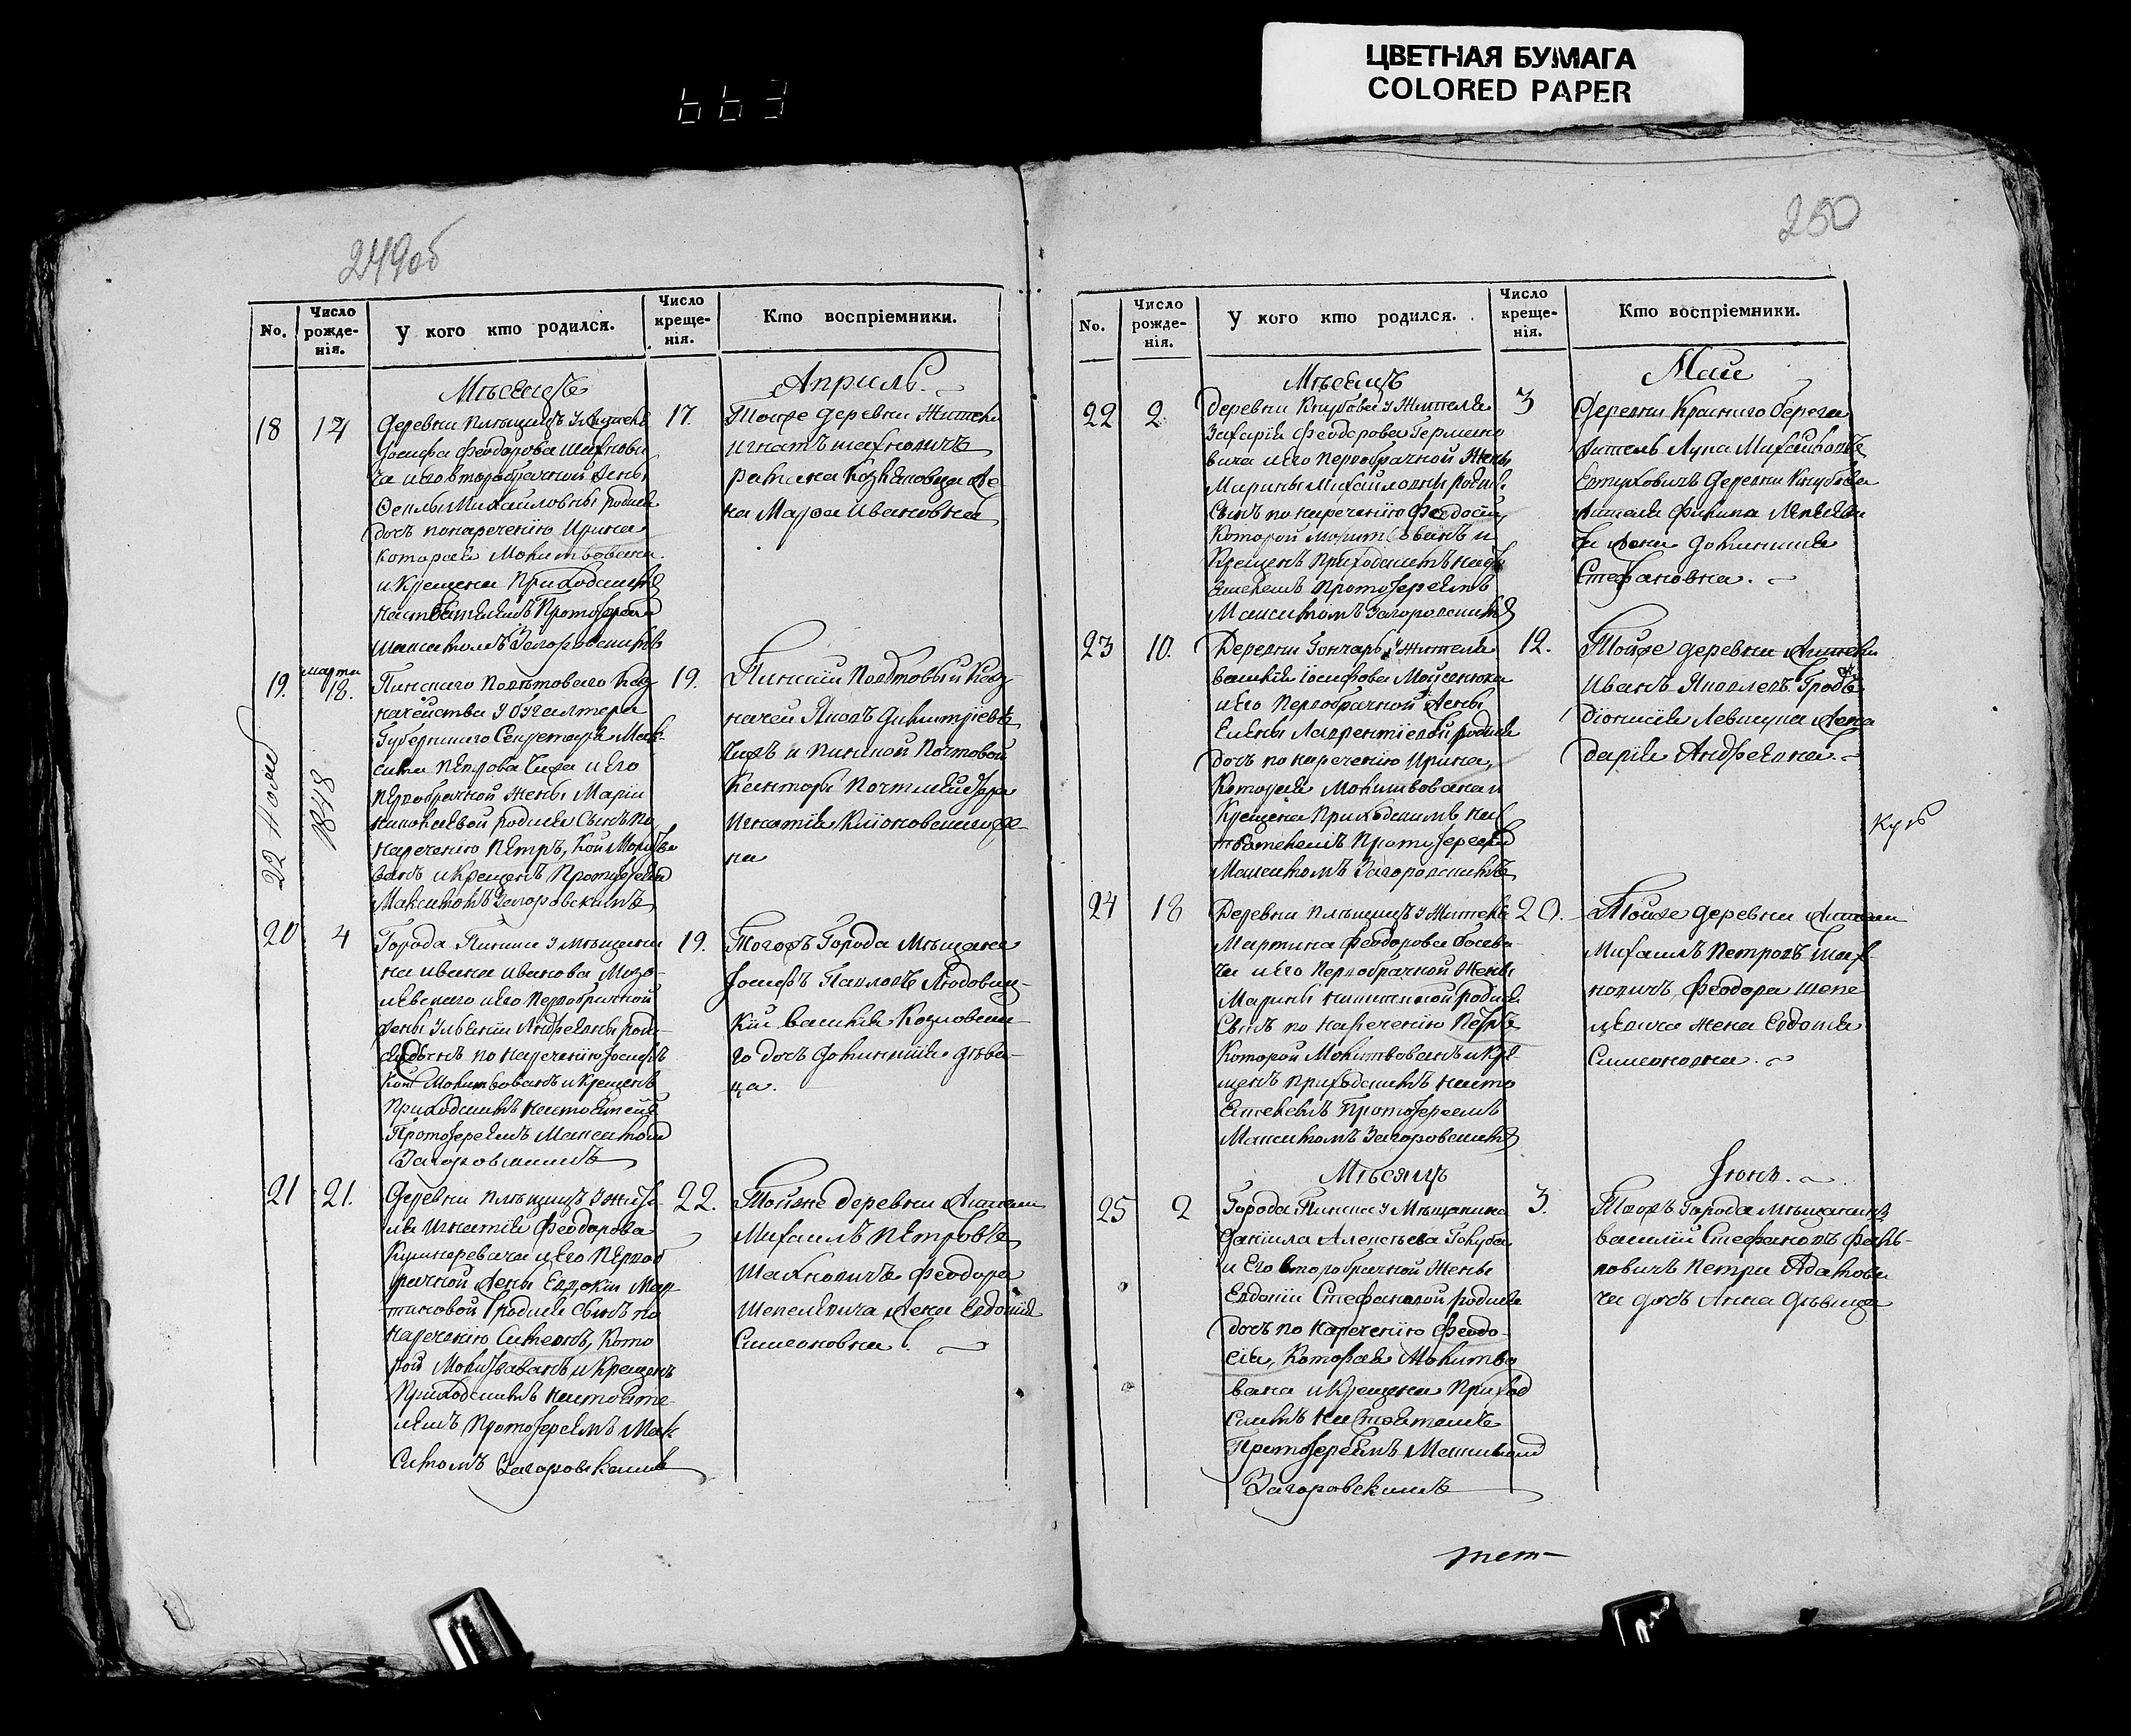 ЦВЕТНАЯ БУМАГА
COLORED PAPER
663
249об
No.
Число рожде-нія.
У кого кто родился.
Число креще-нія.
Кто воспріемники.
Мѣсяцъ
Апрѣль.
18
17
17.
Деревни Плещицъ у жителя
Іосифа Феодорова Шахнови
ча и его второбрачной жены
Михайловны родилась
дочь по нареченію Ирина
которая Молитвована
и Крещена Приходскимъ
настоятелемъ Протоіереемъ
Максимомъ Загоровскимъ
Тойже деревни Житель
Игнатъ Шахновичъ
же-
на Марфа Ивановна
19.
марта
18.
19.
22 Мая
1848
Пинского Повѣтоваго Каз
начейства у Бухгалтера
Губернского Секретаря Мак-
сима Петрова и его
первобрачной жены Маріи
родился Сынъ по
нареченію Петръ, кой Молитво
ванъ и Крещенъ Протоіереемъ
Максимомъ Загоровскимъ
Пинскій Повѣтовый Каз
начей Яковъ Димитріевъ
и Пинской Почтовой
Конторы Почтмейстера
Игнатія же-
на
20
4
19.
Города Пинска у мѣщани
на Ивана Иванова
и его первобрачной
жены Андреевны роди-
лся Сынъ по нареченію Іосифъ
кой Молитвованъ и Крещенъ
Приходскимъ настоятелемъ
Протоіереемъ Максимомъ
Загоровскимъ
Тогожъ Города Мѣщане
Іосифъ Павловъ Людовиц-
кій Василія Козловска-
го дочь дѣви-
ца.
21
21.
22.
Деревни Плещицъ у жите
ля Игнатія Феодорова
Кушнеревича и его первоб
рачной жены Евдокіи Мар
тиновой родился сынъ по
нареченію Симеонъ, кото
рой Молитвованъ и Крещенъ
Приходскимъ настояте-
лемъ Протоіереемъ Мак
симомъ Загоровскимъ
Тойже деревни Жители
Михаилъ Петровъ
Шахновичъ Феодора
Шепелевича жена Евдокія
Симеоновна.
250
No.
Число рожде-нія.
У кого кто родился.
Число креще-нія.
Кто воспріемники.
Мѣсяцъ
Май
22
2
3
Деревни Кнубова у Жителя
Захарія Феодорова Германо
вича и его первобрачной Жены
Марины Михайловны родился
Сынъ по нареченію Феодосій
Которой Молитвованъ и
Крещенъ Приходскимъ насто
ятелемъ Протоіереемъ
Максимомъ Загоровскимъ
Деревни Краснаго берега
житель Лука Михайловъ
Евтуховичъ Деревни Кнубова
жителя Филипа
ча жена
Стефановна.
23
10.
12.
Деревни Гончаръ у Жителя
Василія Іосифова Мойсеюка
и его Первобрачной жены
Елены Лаврентіевой родилась
дочь по нареченію Ирина,
Которая Молитвована и
Крещена Приходскимъ нас
тоятелемъ Протоіереемъ
Максимомъ Загоровскимъ
Тойже деревни Жители
Иванъ Яковлевъ
Діонисія Левицука жена
Дарія Андреевна.
Кузъ
24
18
20.
Деревни Плещицъ у Жителя
Мартина Феодорова
ча и его первобрачной Жены
Марины Никитиной родился
Сынъ по нареченію Петръ
Которой Молитвованъ и Кре
щенъ Приходскимъ насто
ятелемъ Протоіереемъ
Максимомъ Загоровскимъ
Тойже деревни Жители
Михаилъ Петровъ Шах-
новичъ, Феодора Шепе
левича жена Евдокія
Симеоновна.
Мѣсяцъ
Іюнь.
25
2
3.
Города Пинска у Мѣщанина
Даніила Алексѣева Голуба
и Его второбрачной Жены
Евдокіи Стефановой родилась
дочь по нареченію Феодо-
сія, Которая Молитво
вана и Крещена Приход
скимъ Настоятелемъ
Протоіереемъ Максимомъ
Загоровскимъ
Тогожъ Города мѣщанинъ
Василій Стефановъ
Петра Адамови
ча дочь Анна Дѣвица